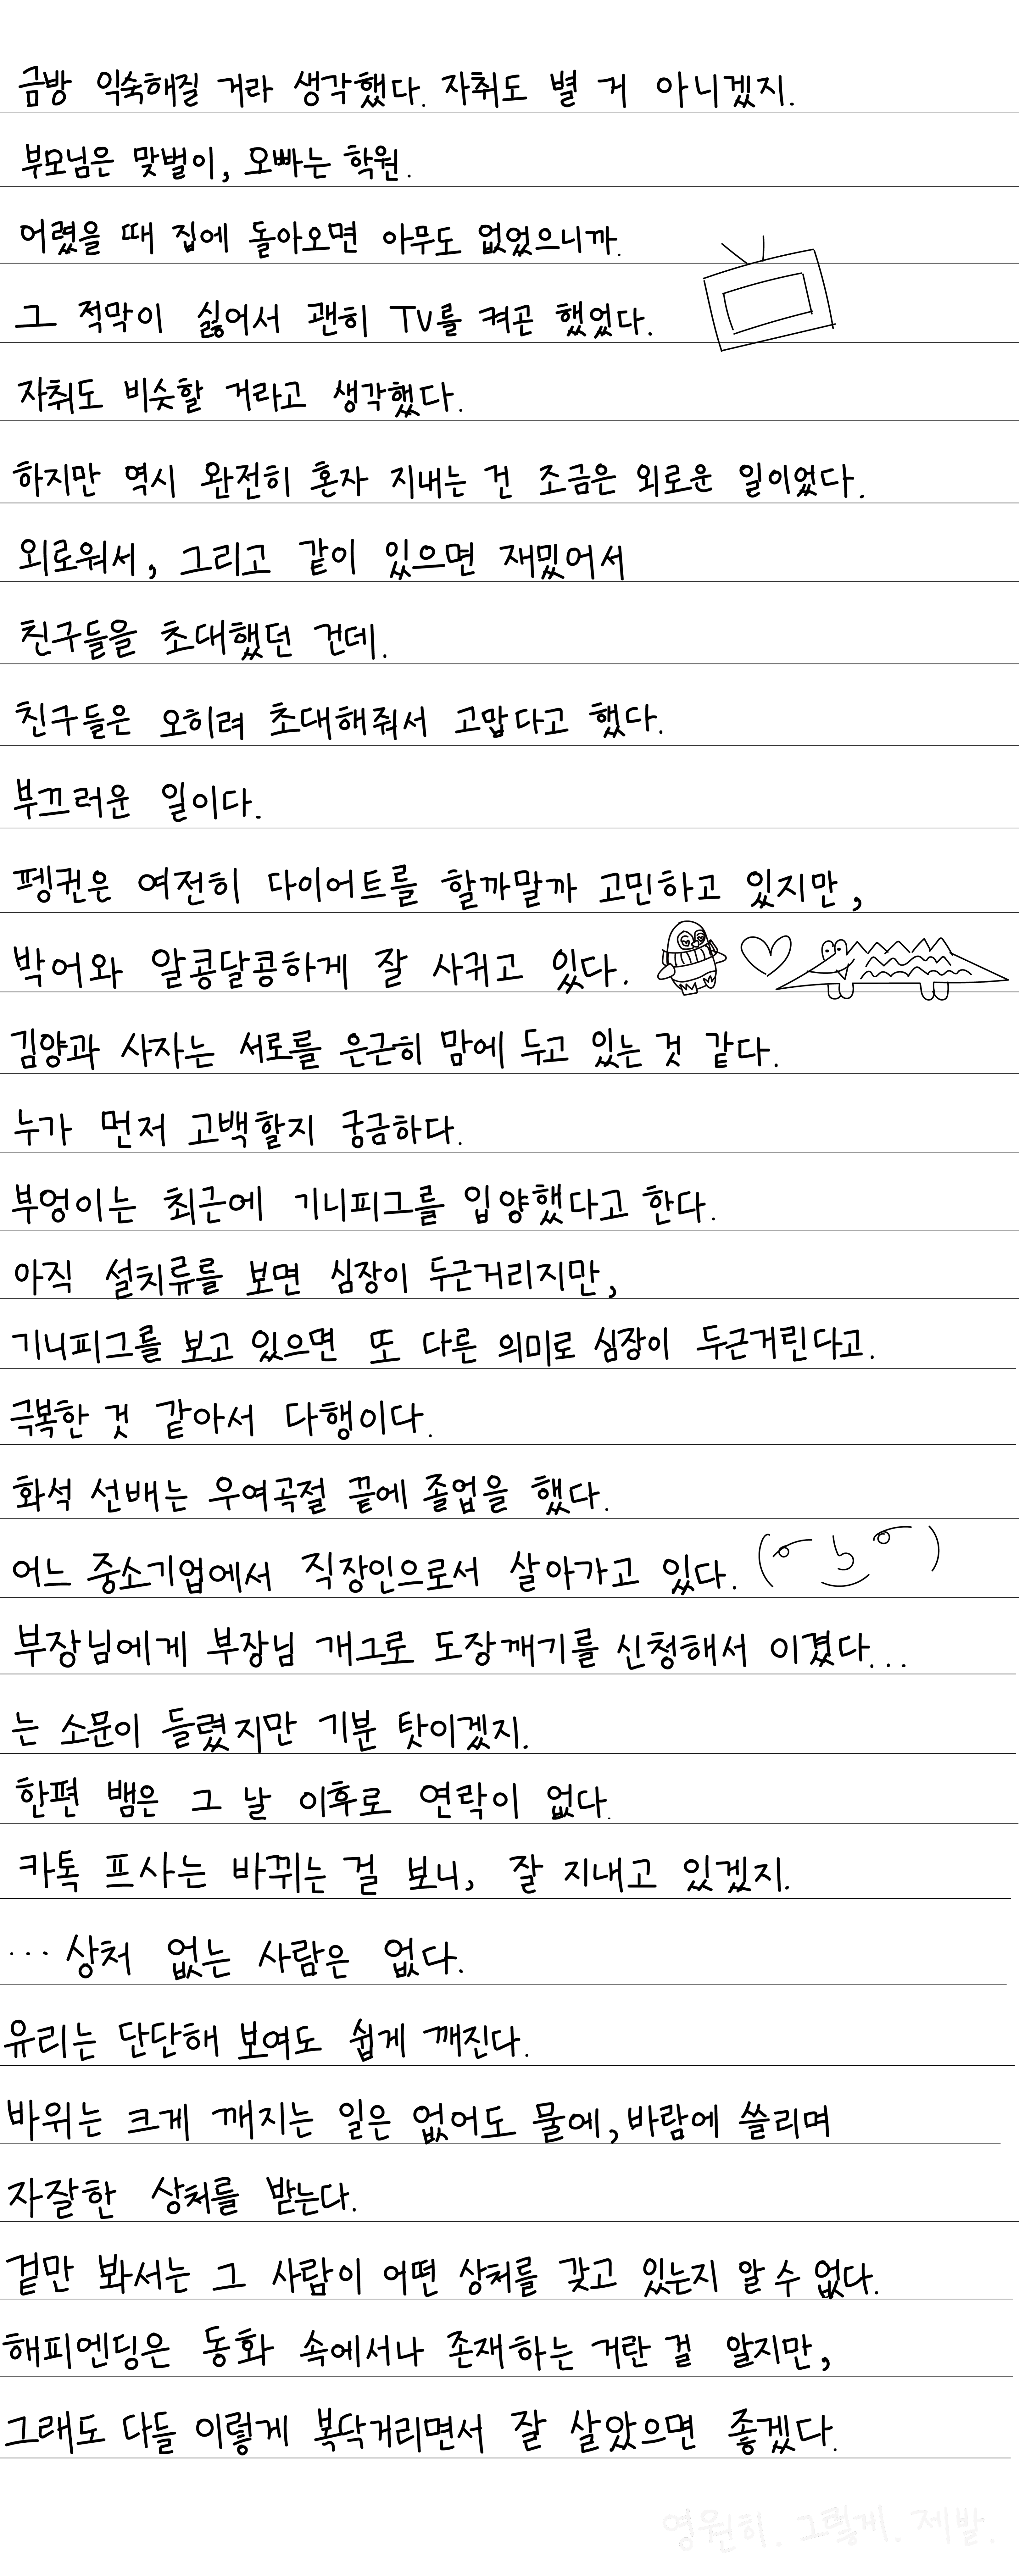 금방 익숙해질 거라 생각했다. 자취도 별 거 아니겠지.
부모님은 맞벌이, 오빠는 학원.
어렸을 때 집에 돌아오면 아무도 없었으니까.
그 적막이 싫어서 괜히 TV를 켜곤 했었다.
자취도 비슷할 거라고 생각했다.
하지만 역시 완전히 혼자 지내는 건 조금은 외로운 일이었다.
외로워서, 그리고 같이 있으면 재밌어서
친구들을 초대했던 건데.
친구들은 오히려 초대해줘서 고맙다고 했다.
부끄러운 일이다.
펭귄은 여전히 다이어트를 할까말까 고민하고 있지만,
박어와 알콩달콩하게 잘 사귀고 있다.
김양과 사자는 서로를 은근히 맘에 두고 있는 것 같다.
누가 먼저 고백할지 궁금하다.
부엉이는 최근에 기니피그를 입양했다고 한다.
아직 설치류를 보면 심장이 두근거리지만,
기니피그를 보고 있으면 또 다른 의미로 심장이 두근거린다고.
극복한 것 같아서 다행이다.
화석 선배는 우여곡절 끝에 졸업을 했다.
어느 중소기업에서 직장인으로서 살아가고 있다. ( ͡° ͜ʖ ͡°)
부장님에게 부장님 개그로 도장깨기를 신청해서 이겼다...
는 소문이 들렸지만 기분 탓이겠지.
한편 뱀은 그 날 이후로 연락이 없다.
카톡 프사는 바뀌는 걸 보니, 잘 지내고 있겠지.
...상처 없는 사람은 없다.
유리는 단단해 보여도 쉽게 깨진다.
바위는 크게 깨지는 일은 없어도 물에, 바람에 쓸리며
자잘한 상처를 받는다.
겉만 봐서는 그 사람이 어떤 상처를 갖고 있는지 알 수 없다.
해피엔딩은 동화 속에서나 존재하는 거란 걸 알지만,
그래도 다들 이렇게 복닥거리면서 잘 살았으면 좋겠다.
영원히. 그렇게. 제발.